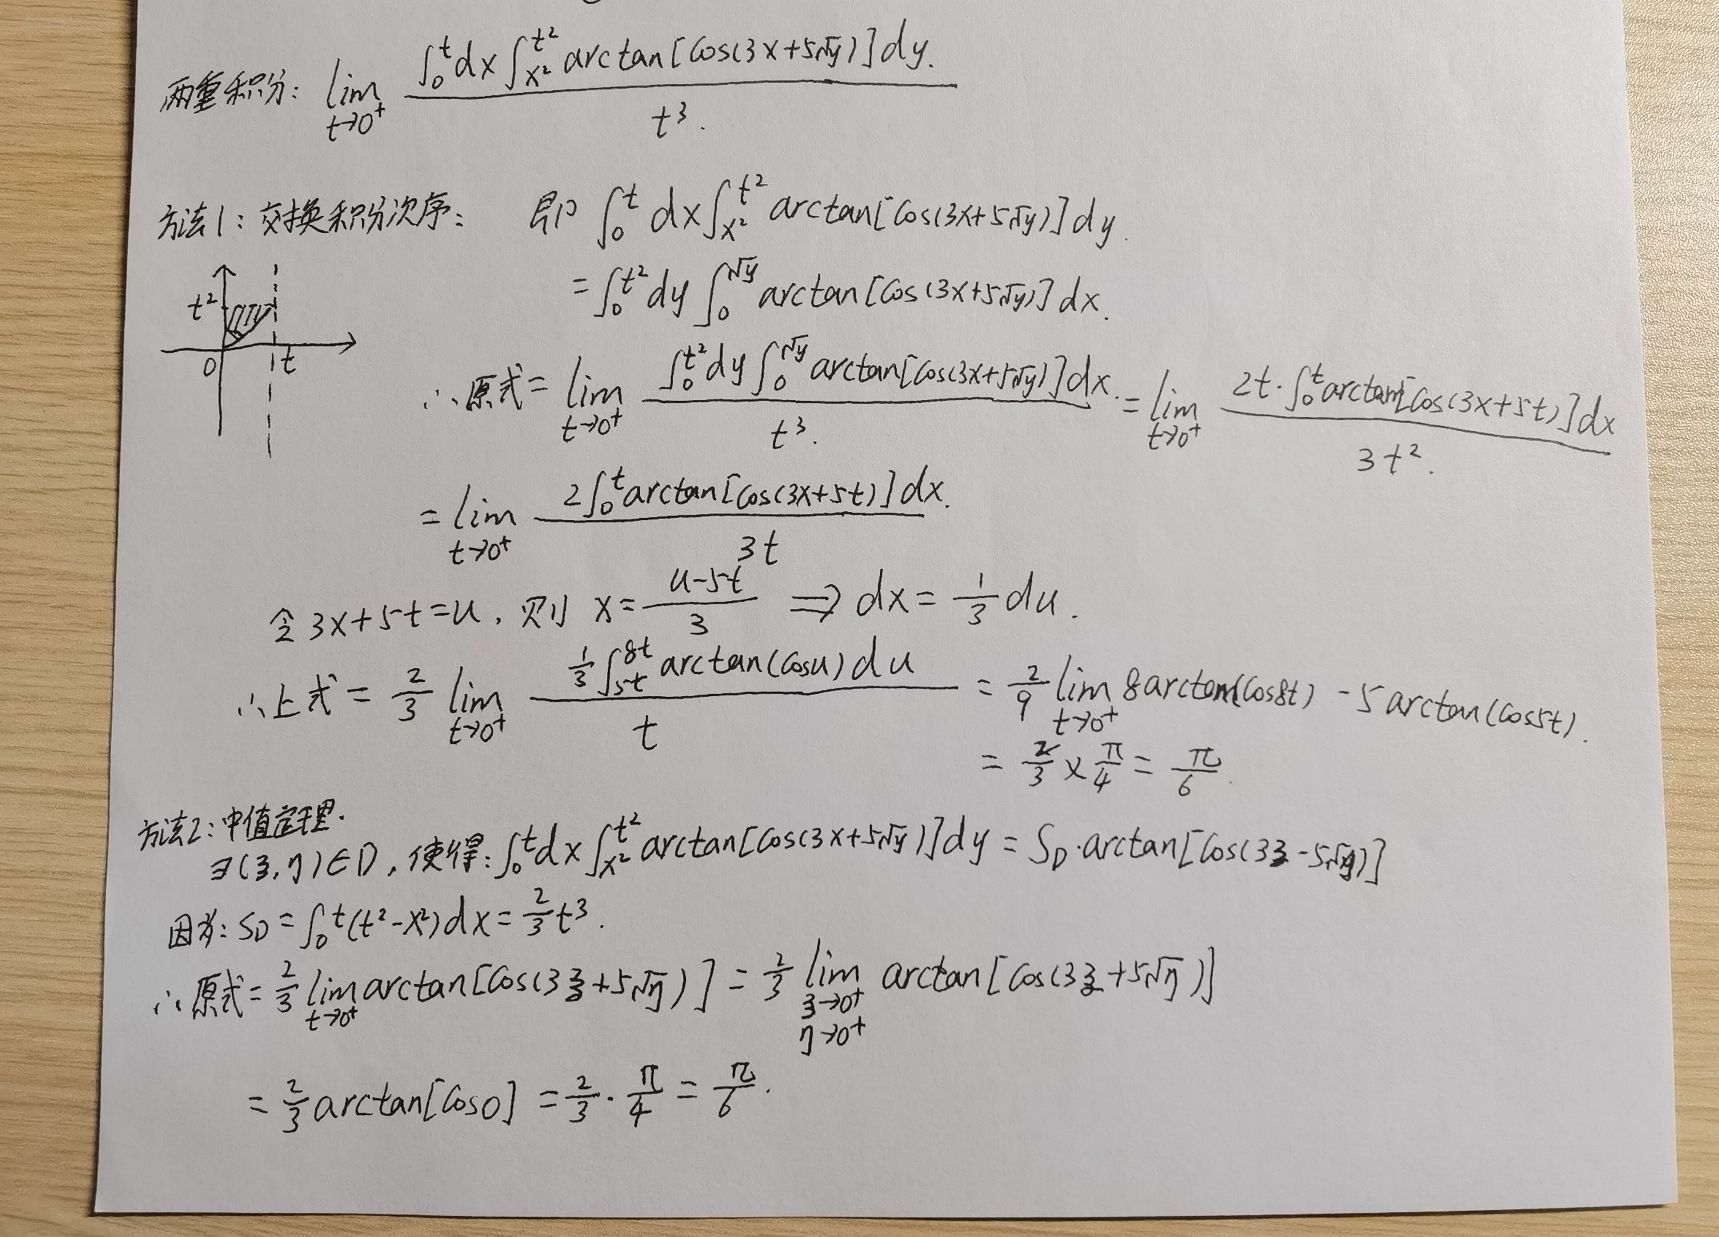 两重积分: lim_{t→0⁺} \frac{∫₀^t dx ∫_{x²}^{t²} arctan[cos(3x+5√y)]dy.}{t³.}
方法1: 交换积分次序: 即 ∫₀^t dx ∫_{x²}^{t²} arctan[cos(3x+5√y)]dy.
= ∫₀^{t²} dy ∫₀^{√y} arctan[cos(3x+5√y)]dx.
t²
0 t
∴原式 = lim_{t→0⁺} \frac{∫₀^{t²} dy ∫₀^{√y} arctan[cos(3x+5√y)]dx.}{t³.} = lim_{t→0⁺} \frac{2t·∫₀^t arctan[cos(3x+5t)]dx}{3t².}
= lim_{t→0⁺} \frac{2∫₀^t arctan[cos(3x+5t)]dx.}{3t}
令3x+5t=u, 则 x=\frac{u-5t}{3} ⇒ dx=\frac{1}{3}du.
∴上式 = \frac{2}{3} lim_{t→0⁺} \frac{\frac{1}{3}∫_{5t}^{8t} arctan(cosu)du}{t} = \frac{2}{9} lim_{t→0⁺} 8arctan(cos8t) - 5arctan(cos5t).
= \frac{2}{3} × \frac{π}{4} = \frac{π}{6}.
方法2: 中值定理.
∃(ξ,η)∈D, 使得: ∫₀^t dx ∫_{x²}^{t²} arctan[cos(3x+5√y)]dy = S_D·arctan[cos(3ξ-5√η)]
因为: S_D = ∫₀^t(t²-x²)dx = \frac{2}{3}t³.
∴原式 = \frac{2}{3} lim_{t→0⁺} arctan[cos(3ξ+5√η)] = \frac{2}{3} lim_{ξ→0⁺ η→0⁺} arctan[cos(3ξ+5√η)]
= \frac{2}{3} arctan[cos0] = \frac{2}{3}·\frac{π}{4} = \frac{π}{6}.